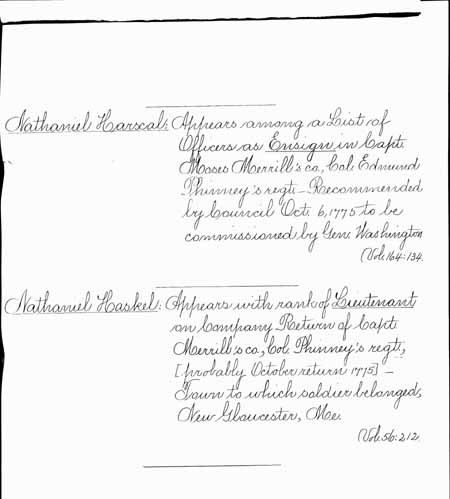 Nathaniel Harscal: Appears among a List of
Officers as Ensign in Capt.
Moses Merrill's co., Col. Edmund
Phinney's regt. – Recommended
by Council Oct. 6, 1775 to be
commissioned by Gen. Washington
(Vol. 164: 134.
Nathaniel Haskel: Appears with rank of Lieutenant
on Company Return of Capt.
Merrill's co., Col. Phinney's regt.,
[probably October return 1775] –
Town to which soldier belonged,
New Gloucester, Me.
(Vol. 56: 212.